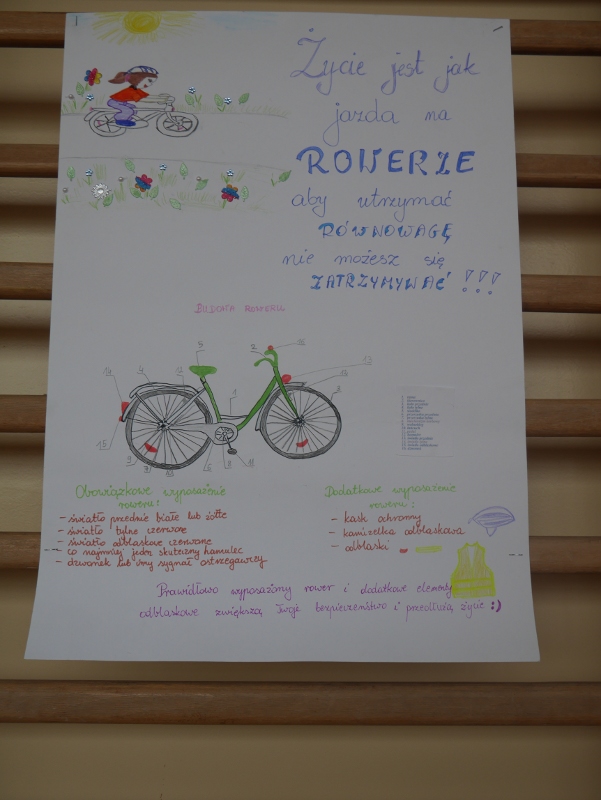 Życie jest jak
jazda na
ROWERZE
aby utrzymać
RÓWNOWAGĘ
nie możesz się
ZATRZYMYWAĆ !!!
BUDOWA ROWERU
5
2
10
12
4
13
14
1
3
15
6
8
11
Obowiązkowe wyposażenie
roweru:
- światło przednie białe lub żółte
- światło tylne czerwone
- światło odblaskowe czerwone
- co najmniej jeden skuteczny hamulec
- dzwonek lub inny sygnał ostrzegawczy
Dodatkowe wyposażenie
roweru:
- kask ochronny
- kamizelka odblaskowa
- odblaski
Prawidłowo wyposażony rower i dodatkowe elementy
odblaskowe zwiększą Twoje bezpieczeństwo i przedłużą życie :)